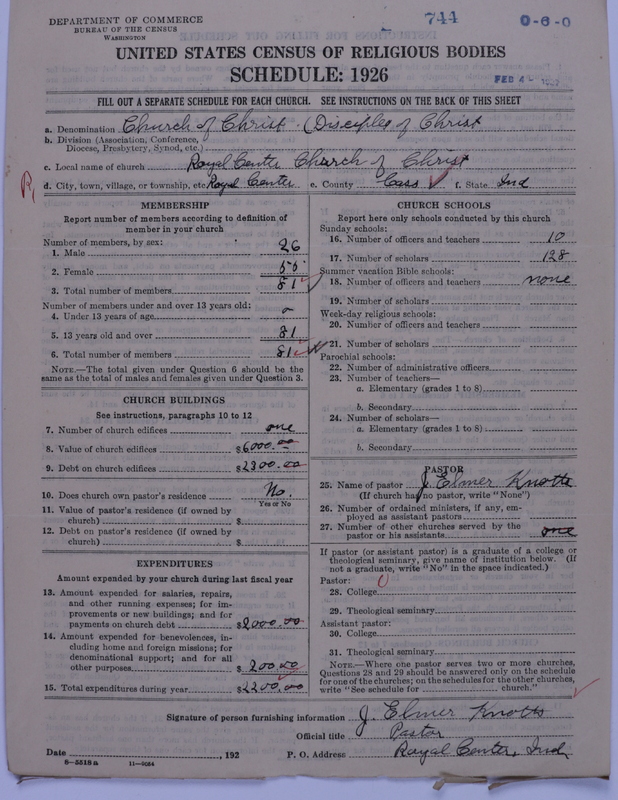 DEPARTMENT OF COMMERCE
BUREAU OF THE CENSUS
WASHINGTON
744
0-6-0
UNITED STATES CENSUS OF RELIGIOUS BODIES
SCHEDULE: 1926
FEB 4
FILL OUT A SEPARATE SCHEDULE FOR EACH CHURCH. SEE INSTRUCTIONS ON THE BACK OF THIS SHEET
a. Denomination Church of Christ (Disciples of Christ
b. Division (Association, Conference, Diocese, Presbytery, Synod, etc.)
c. Local name of church Royal Center Church of Christ
d. City, town, village, or township, etc. Royal Center e. County Cass f. State Ind
MEMBERSHIP
Report number of members according to definition of
member in your church
Number of members, by sex:
1. Male 26
2. Female 55
3. Total number of members 81
Number of members under and over 13 years old:
4. Under 13 years of age 0
5. 13 years old and over 81
6. Total number of members 81
NOTE.—The total given under Question 6 should be the
same as the total of males and females given under Question 3.
CHURCH BUILDINGS
See instructions, paragraphs 10 to 12
7. Number of church edifices one
8. Value of church edifices $6000.00
9. Debt on church edifices $2300.00
10. Does church own pastor's residence No.
Yes or No
11. Value of pastor's residence (if owned by
church) $
12. Debt on pastor's residence (if owned by
church) $
EXPENDITURES
Amount expended by your church during last fiscal year
13. Amount expended for salaries, repairs,
and other running expenses; for im-
provements or new buildings; and for
payments on church debt $2000.00
14. Amount expended for benevolences, in-
cluding home and foreign missions; for
denominational support; and for all
other purposes $200.00
15. Total expenditures during year $2200.00
CHURCH SCHOOLS
Report here only schools conducted by this church
Sunday schools:
16. Number of officers and teachers 10
17. Number of scholars 128
Summer vacation Bible schools:
18. Number of officers and teachers none
19. Number of scholars
Week-day religious schools:
20. Number of officers and teachers
21. Number of scholars
Parochial schools:
22. Number of administrative officers
23. Number of teachers—
a. Elementary (grades 1 to 8)
b. Secondary
24. Number of scholars—
a. Elementary (grades 1 to 8)
b. Secondary
PASTOR
25. Name of pastor J. Elmer Knotts
(If church has no pastor, write "None")
26. Number of ordained ministers, if any, em-
ployed as assistant pastors
27. Number of other churches served by the
pastor or his assistants one
If pastor (or assistant pastor) is a graduate of a college or
theological seminary, give name of institution below. (If
not a graduate, write "No" in the space indicated.)
Pastor:
28. College
29. Theological seminary
Assistant pastor:
30. College
31. Theological seminary
NOTE.—Where one pastor serves two or more churches,
Questions 28 and 29 should be answered only on the schedule
for one of the churches; on the schedules for the other churches,
write "See schedule for church."
Signature of person furnishing information J. Elmer Knotts
Official title Pastor
Date , 192 P. O. Address Royal Center, Ind
8-5518a 11-9064